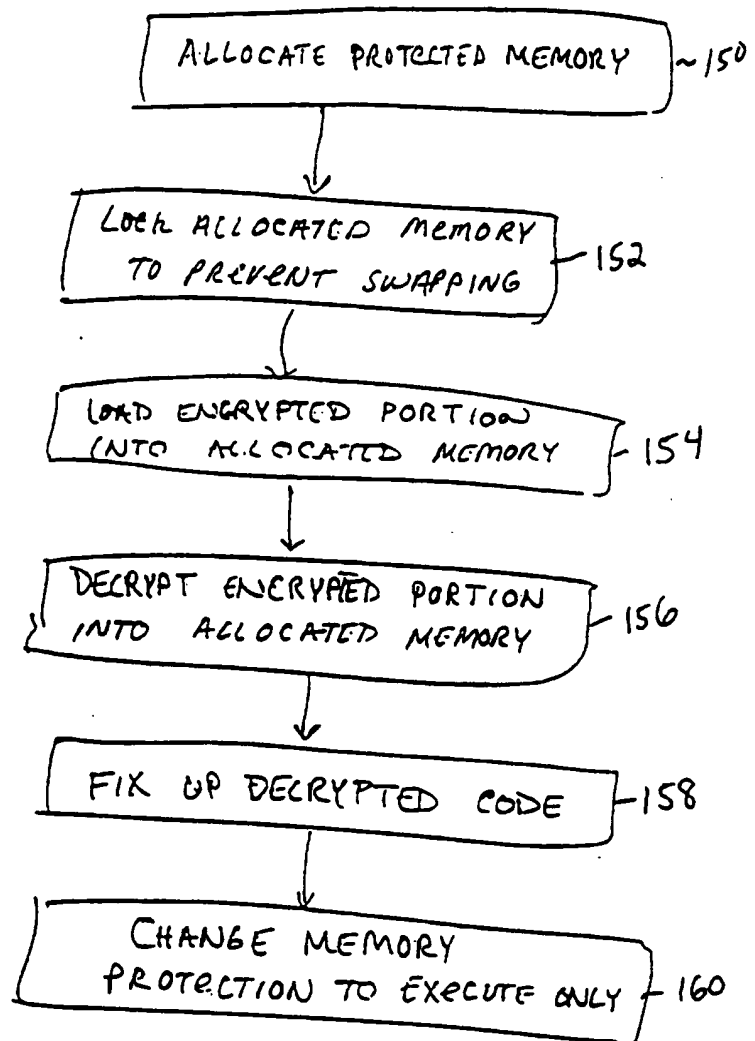 ALLOCATE PROTECTED MEMORY ~150
LOCK ALLOCATED MEMORY
TO PREVENT SWAPPING 152
LOAD ENCRYPTED PORTION
INTO ALLOCATED MEMORY 154
DECRYPT ENCRYPTED PORTION
INTO ALLOCATED MEMORY 156
FIX UP DECRYPTED CODE 158
CHANGE MEMORY
PROTECTION TO EXECUTE ONLY 160